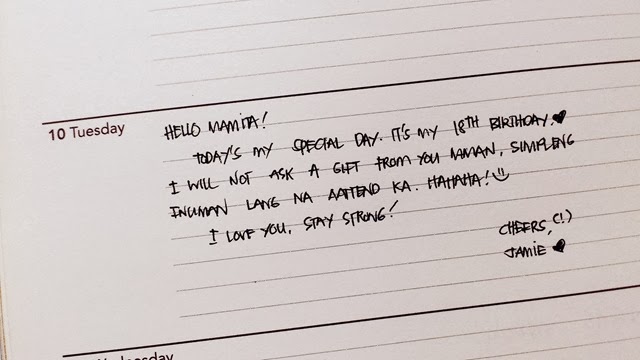 10 Tuesday
HELLO MAMITA!
TODAY'S MY SPECIAL DAY. IT'S MY 18TH BIRTHDAY.♥
I WILL NOT ASK A GIFT FROM YOU NAMAN, SIMPLENG
INUMAN LANG NA AATTEND KA. HAHAHA! ☺
I LOVE YOU, STAY STRONG!
CHEERS, (!)
JAMIE ♥
Wednesday